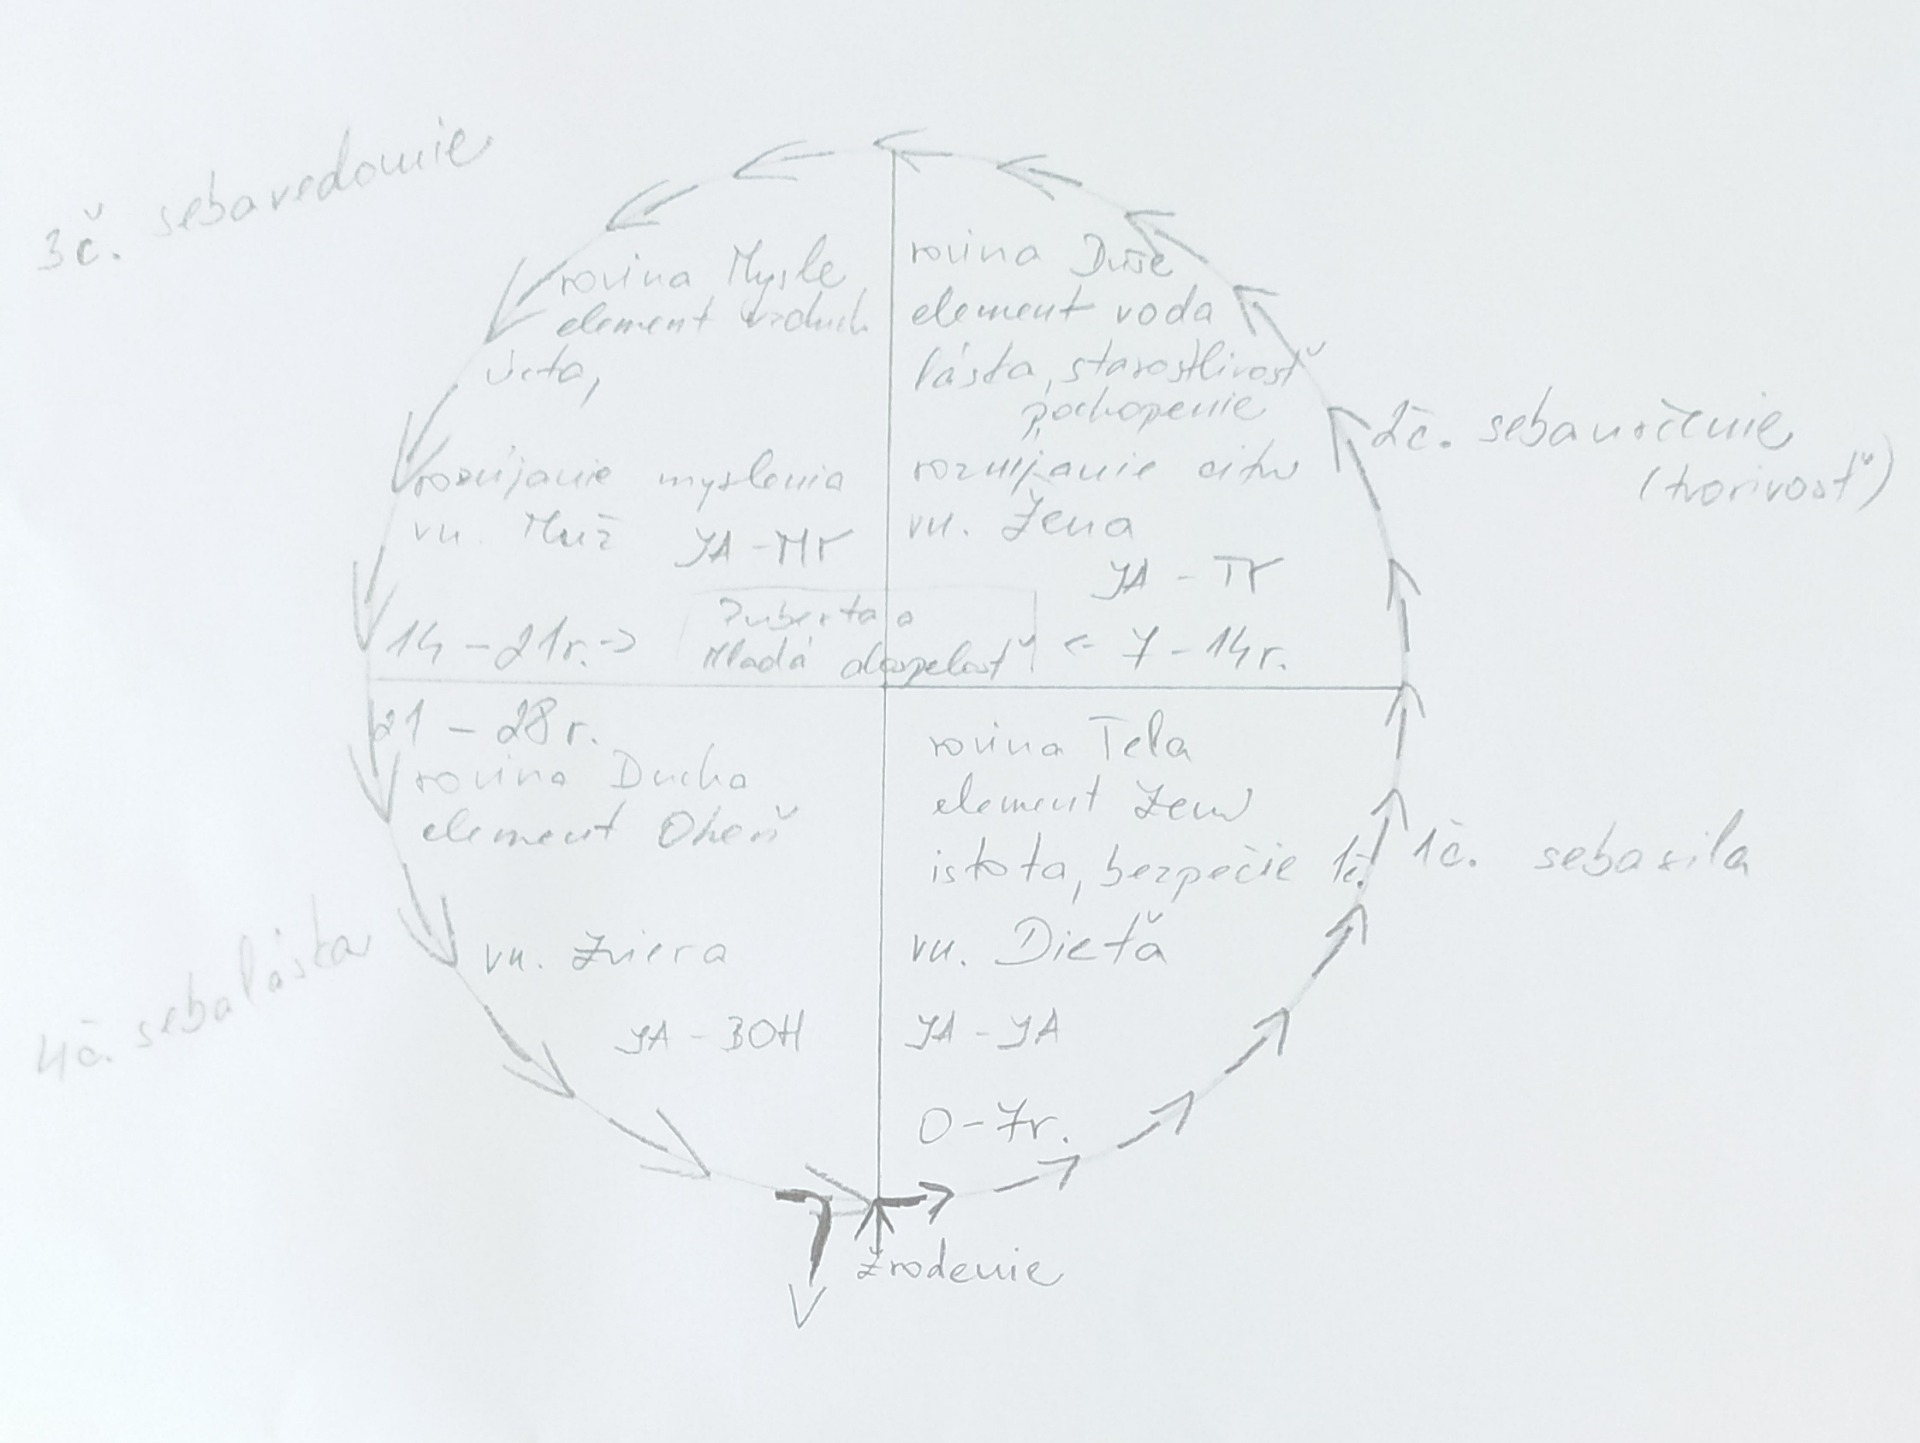 3č. sebavedomie
rovina Mysle
element vzduch
úcta,
rozvíjanie myslenia
vn. Muž JA-MY
14-21r.->
rovina Duše
element voda
láska, starostlivosť
pochopenie
rozvíjanie citov
vn. Žena
JA - TY
<- 7-14r.
Puberta a
Mladá dospelosť
2č. sebaurčenie
(tvorivosť)
21-28r.
rovina Ducha
element Oheň
vn. Zviera
JA-BOH
4č. sebaláska
rovina Tela
element Zem
istota, bezpečie 1č.
vn. Dieťa
JA-JA
0-7r.
1č. sebasila
Zrodenie